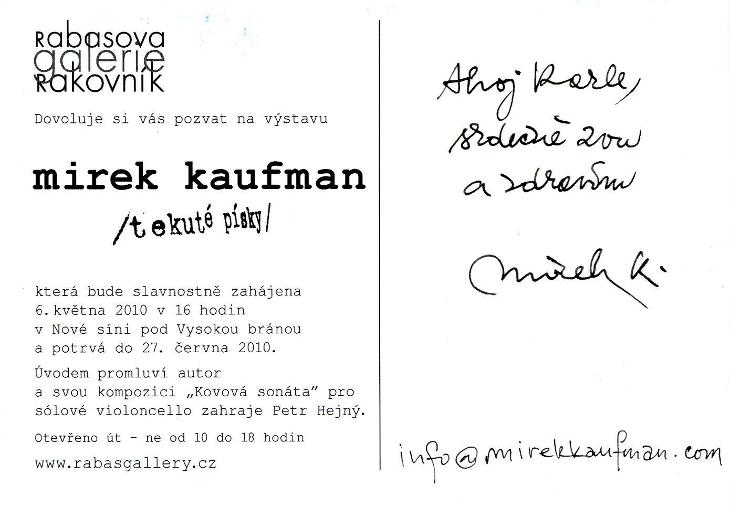 Rabasova
galerie
Rakovník
Dovoluje si vás pozvat na výstavu
mirek kaufman
/tekuté písky/
která bude slavnostně zahájena
6. května 2010 v 16 hodin
v Nové síni pod Vysokou bránou
a potrvá do 27. června 2010.
Úvodem promluví autor
a svou kompozici „Kovová sonáta" pro
sólové violoncello zahraje Petr Hejný.
Otevřeno út - ne od 10 do 18 hodin
www.rabasgallery.cz
Ahoj Karle,
srdečně zvu
a zdravím
Mirek K.
info@mirekkaufman.com